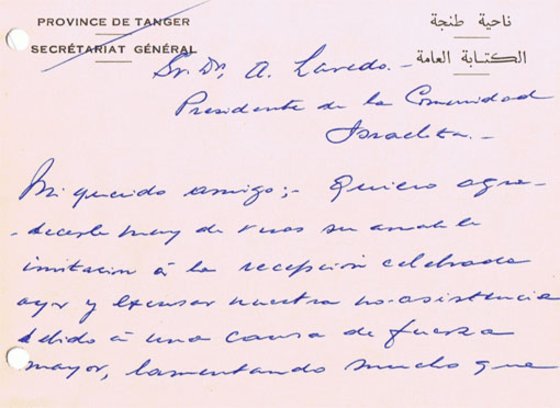 PROVINCE DE TANGER
SECRÉTARIAT GÉNÉRAL
ناحية طنجة
الكتابة العامة
Sr. Dr. A. Laredo.-
Presidente de la Comunidad
Israelita.-
Mi querido amigo;- Quiero agra-
-decerle muy de veras su amable
invitacion à la recepción celebrada
ayer y excusar nuestra no-asistencia
debido à una causa de fuerza
mayor, lamentando mucho que